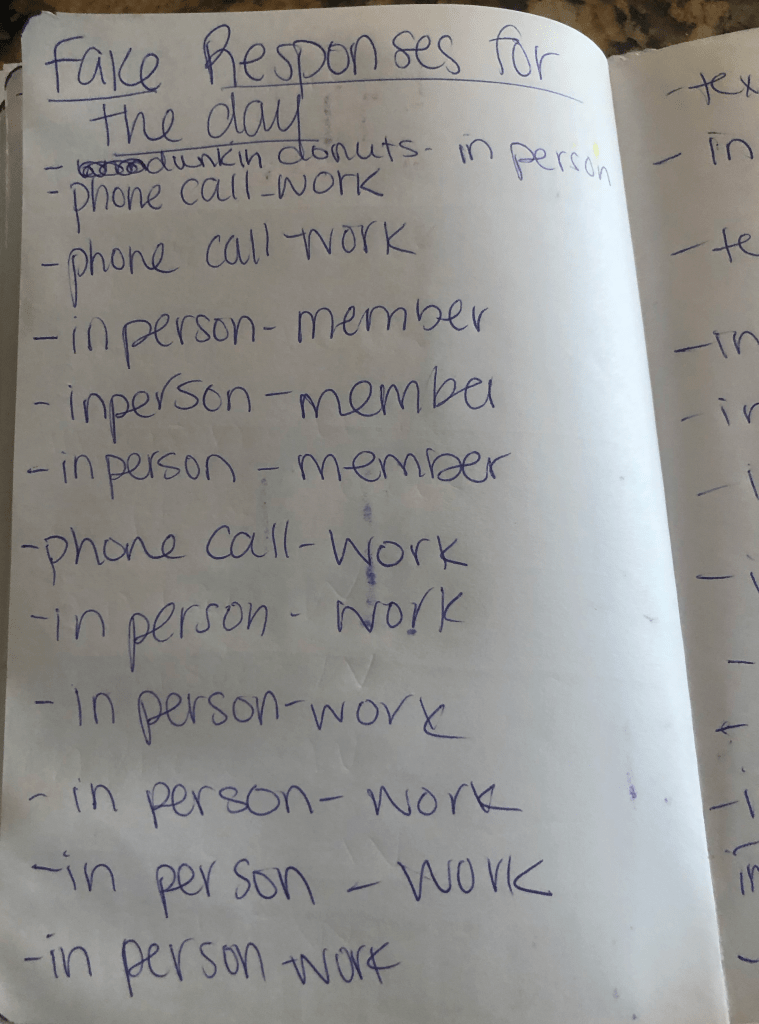 Fake Responses for
the day
- dunkin donuts- in person
- phone call-work
- phone call-work
- in person- member
- inperson - member
- in person - member
- phone call - work
- in person - work
- In person-work
- in person- work
- in person - work
- in person-work
- in